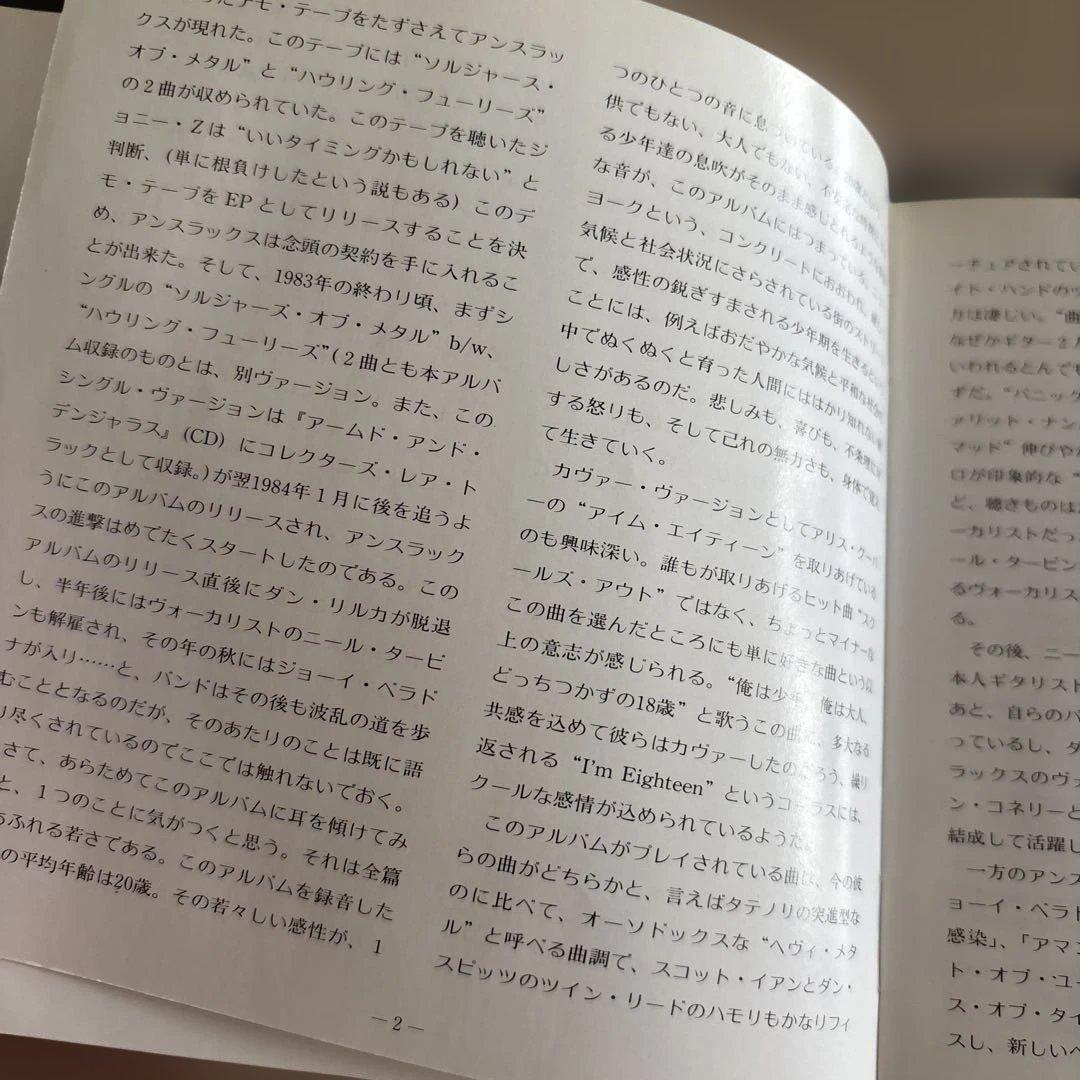 デモ・テープをたずさえてアンスラッ
クスが現れた。このテープには“ソルジャース・
オブ・メタル”と“ハウリング・フューリーズ”
の2曲が収められていた。このテープを聴いたジ
ョニー・Zは“いいタイミングかもしれない”と
判断、(単に根負けしたという説もある)このデ
モ・テープをEPとしてリリースすることを決
め、アンスラックスは念頭の契約を手に入れるこ
とが出来た。そして、1983年の終わり頃、まずシ
ングルの“ソルジャーズ・オブ・メタル”b/w、
“ハウリング・フューリーズ”(2曲とも本アルバ
ム収録のものとは、別ヴァージョン。また、この
シングル・ヴァージョンは『アームド・アンド・
デンジャラス』(CD)にコレクターズ・レア・ト
ラックとして収録。)が翌1984年1月に後を追うよ
うにこのアルバムのリリースされ、アンスラック
スの進撃はめでたくスタートしたのである。この
アルバムのリリース直後にダン・リルカが脱退
し、半年後にはヴォーカリストのニール・タービ
ンも解雇され、その年の秋にはジョーイ・ベラド
ナが入リ……と、バンドはその後も波乱の道を歩
むこととなるのだが、そのあたりのことは既に語
り尽くされているのでここでは触れないでおく。
さて、あらためてこのアルバムに耳を傾けてみ
と、1つのことに気がつくと思う。それは全篇
あふれる若さである。このアルバムを録音した
の平均年齢は20歳。その若々しい感性が、1
つのひとつの音に息づいている。
供でもない、大人でもない、不安定な
る少年達の息吹がそのまま感じとれる
な音が、このアルバムにはつまっている。
ヨークという、コンクリートにおおわれ、
気候と社会状況にさらされている街のストリート
で、感性の鋭ぎすまされる少年期を生きるという
ことには、例えばおだやかな気候と平和な
中でぬくぬくと育った人間にははかり知れない
しさがあるのだ。悲しみも、喜びも、不条理に対
する怒りも、そして己れの無力さも、身体で覚え
て生きていく。
カヴァー・ヴァージョンとしてアリス・クーパ
ーの“アイム・エイティーン”を取りあげている
のも興味深い。誰もが取りあげるヒット曲“スク
ールズ・アウト”ではなく、ちょっとマイナーな
この曲を選んだところにも単に好きな曲という以
上の意志が感じられる。“俺は少年、俺は大人、
どっちつかずの18歳”と歌うこの曲に、多大なる
共感を込めて彼らはカヴァーしたのだろう、繰り
返される“I'm Eighteen”というコーラスには、
クールな感情が込められているようだ。
このアルバムがプレイされている曲は、今の彼
らの曲がどちらかと、言えばタテノリの突進型な
のに比べて、オーソドックスな“ヘヴィ・メタ
ル”と呼べる曲調で、スコット・イアンとダン・
スピッツのツイン・リードのハモリもかなりフィ
—2—
ーチュアされてい
イド・ハンドのツ
方は凄しい。“曲
なぜかギター2人
いわれるとんでも
ずだ。“パニック
ァリット・ナン
マッド”伸びやか
ロが印象的な“
ど、聴きものは
ーカリストだっ
ール・タービン
るヴォーカリス
る。
その後、ニー
本人ギタリスト
あと、自らのバ
っているし、ダ
ラックスのヴァ
ン・コネリーと
結成して活躍し
一方のアンス
ョーイ・ベラド
感染」、「アマン
ト・オブ・ユー
ス・オブ・タイ
スし、新しいベ